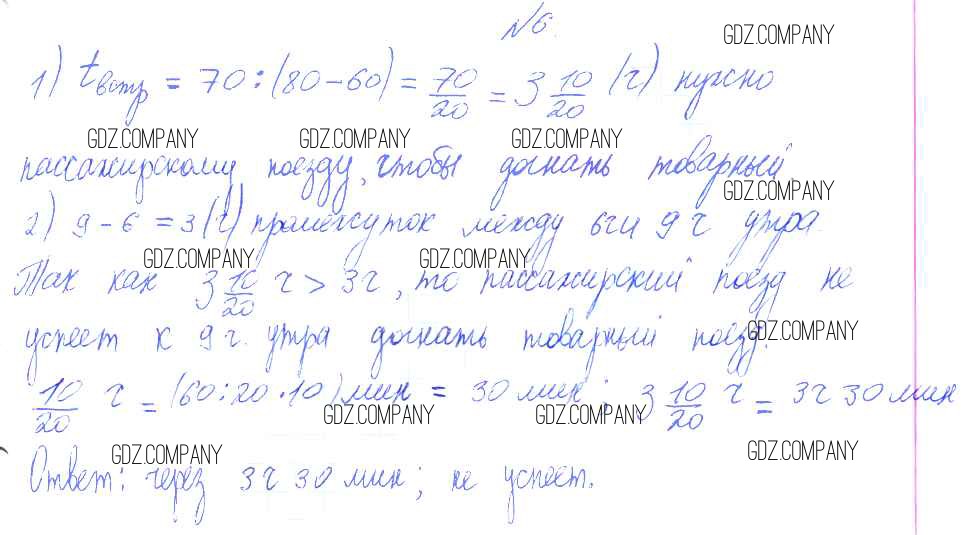 №6.
GDZ.COMPANY
1) tвстр = 70 : (80 - 60) = 70/20 = 3 10/20 (ч) нужно
GDZ.COMPANY GDZ.COMPANY GDZ.COMPANY
пассажирскому поезду, чтобы догнать товарный.
GDZ.COMPANY
2) 9 - 6 = 3 (ч) промежуток между 6ч и 9 ч утра.
GDZ.COMPANY GDZ.COMPANY
Так как 3 10/20 ч > 3ч, то пассажирский поезд не
успеет к 9 ч. утра догнать товарный поезд.
GDZ.COMPANY
10/20 ч = (60 : 20 · 10) мин = 30 мин ; 3 10/20 ч = 3ч 30 мин
GDZ.COMPANY GDZ.COMPANY
GDZ.COMPANY GDZ.COMPANY
Ответ: через 3ч 30 мин ; не успеет.